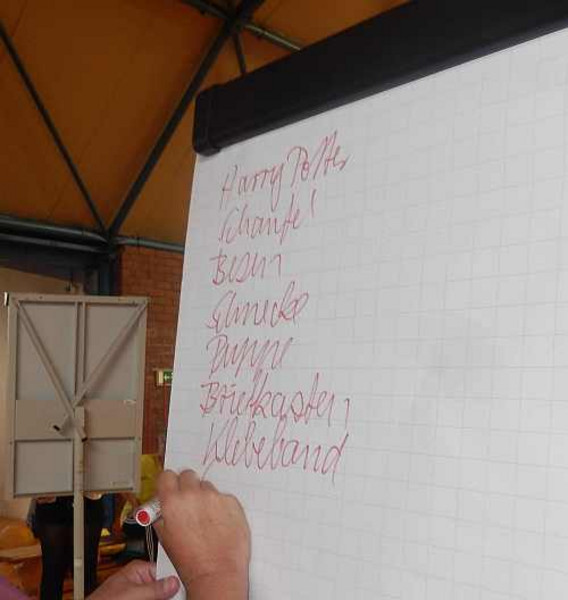 Harry Potter
Schaufel
Besen
Schnecke
Puppe
Briefkasten
Klebeband